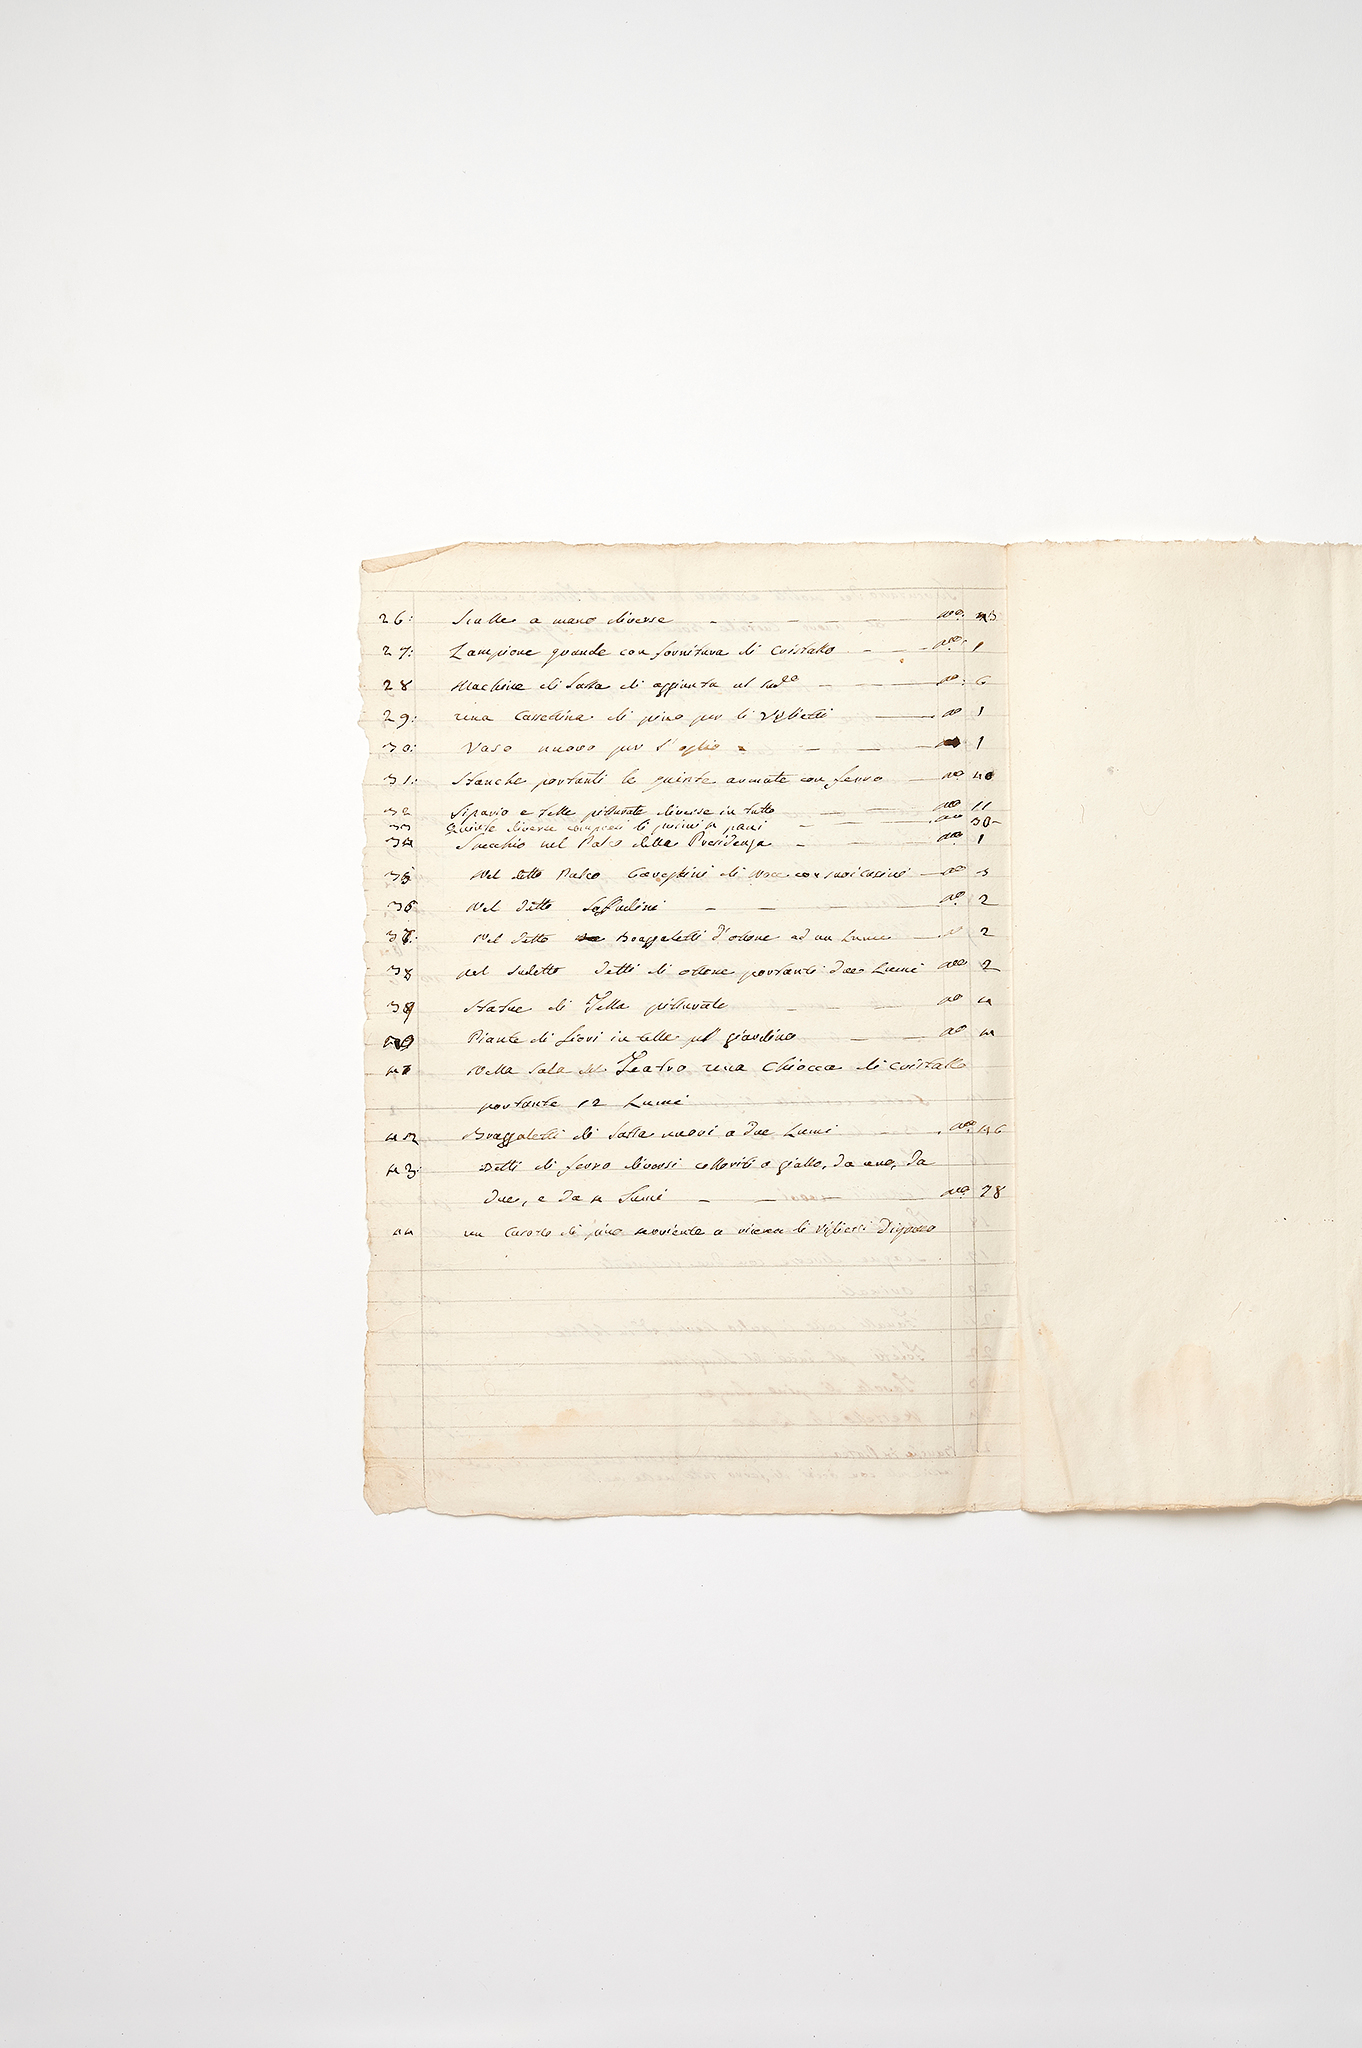 26: Scalle a mano diverse n°:
27: Lampione grande con fornitura di Cristallo n°: 1
28 Machine di Latta di aggiunta al sud.to n°: 6
29: una Cassettina di pino per li Viglietti n° 1
30: Vaso nuovo per l'oglio 1
31: Stanche portanti le quinte armate con ferro n° 40
32 Sipario e telle pitturate diverse in tutto n° 11
33 Quinte diverse compresi li pani 30
34 Specchio nel Palco della Presidenza n° 1
35 Nel detto Palco di con suoi n° 3
36 Nel detto n° 2
37: Nel detto Brazzaletti d'ottone ad un Lume n° 2
38 nel sudetto detti di ottone portanti due Lumi n° 2
39 Statue di Tella pitturate n° 4
40 Piante di Fiori in telle pel giardino n° 4
41 Nella Sala del Teatro una Chiocca di Cristallo
portante 12 Lumi
42 Brazzaletti di Latta nuovi a due Lumi n° 46
43: Detti di ferro diversi colloriti a giallo, da uno, da
due, e da 4 Lumi n° 28
44 un di pino li Viglietti